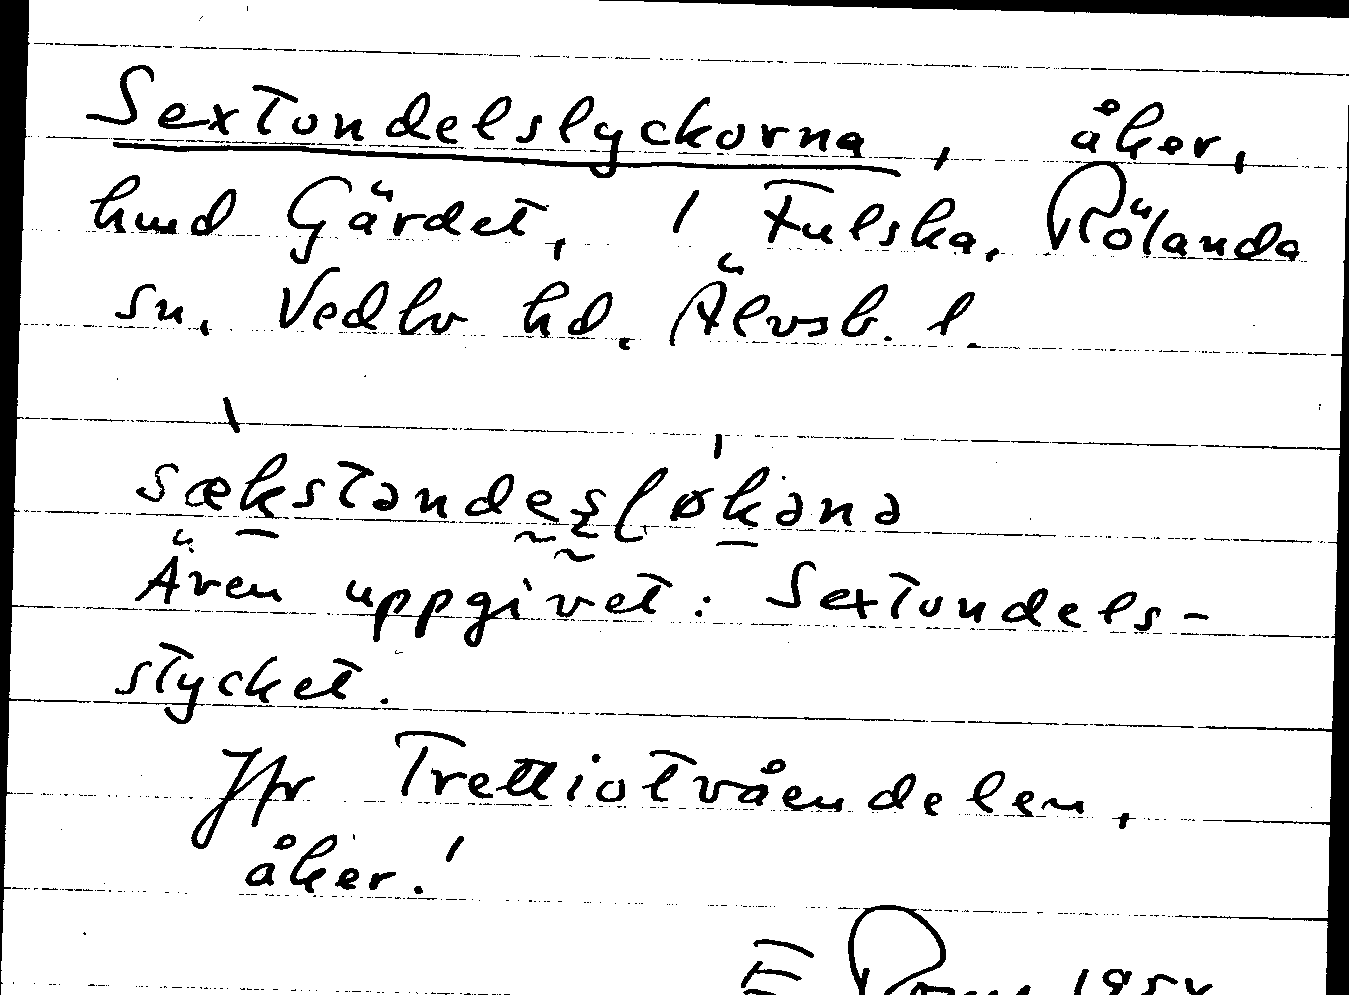 Sextondelslyckorna, åker,
hmd Gärdet, 1 Fulska, Rölanda
sn, Vedbo hd. Älvsb. l.
sækstəndesløkənə
Även uppgivet: Sextondels-
stycket.
Jfr Trettiotvåendelen,
åker!
E